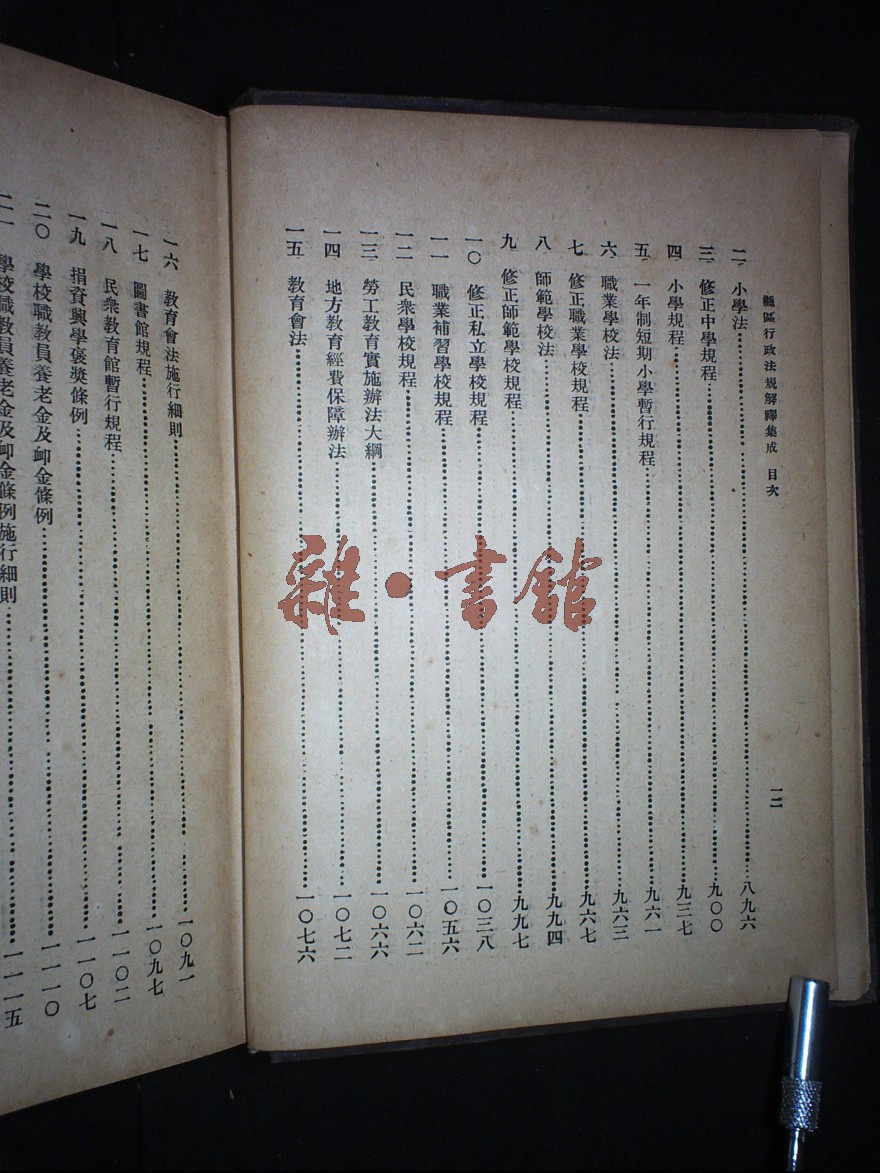 縣區行政法規解釋集成 目次 一二
二 小學法 八九六
三 修正中學規程 九〇〇
四 小學規程 九三七
五 一年制短期小學暫行規程 九六一
六 職業學校法 九六三
七 修正職業學校規程 九六七
八 師範學校法 九九四
九 修正師範學校規程 九九七
一〇 修正私立學校規程 一〇三八
一一 職業補習學校規程 一〇五六
一二 民衆學校規程 一〇六二
一三 勞工教育實施辦法大綱 一〇六六
一四 地方教育經費保障辦法 一〇七二
一五 教育會法 一〇七六
一六 教育會法施行細則 一〇九一
一七 圖書館規程 一〇九七
一八 民衆教育館暫行規程 一一〇二
一九 捐資興學褒獎條例 一一〇七
二〇 學校職教員養老金及卹金條例 一一一〇
二一 學校職教員養老金及卹金條例施行細則 一一一五
雜·書館